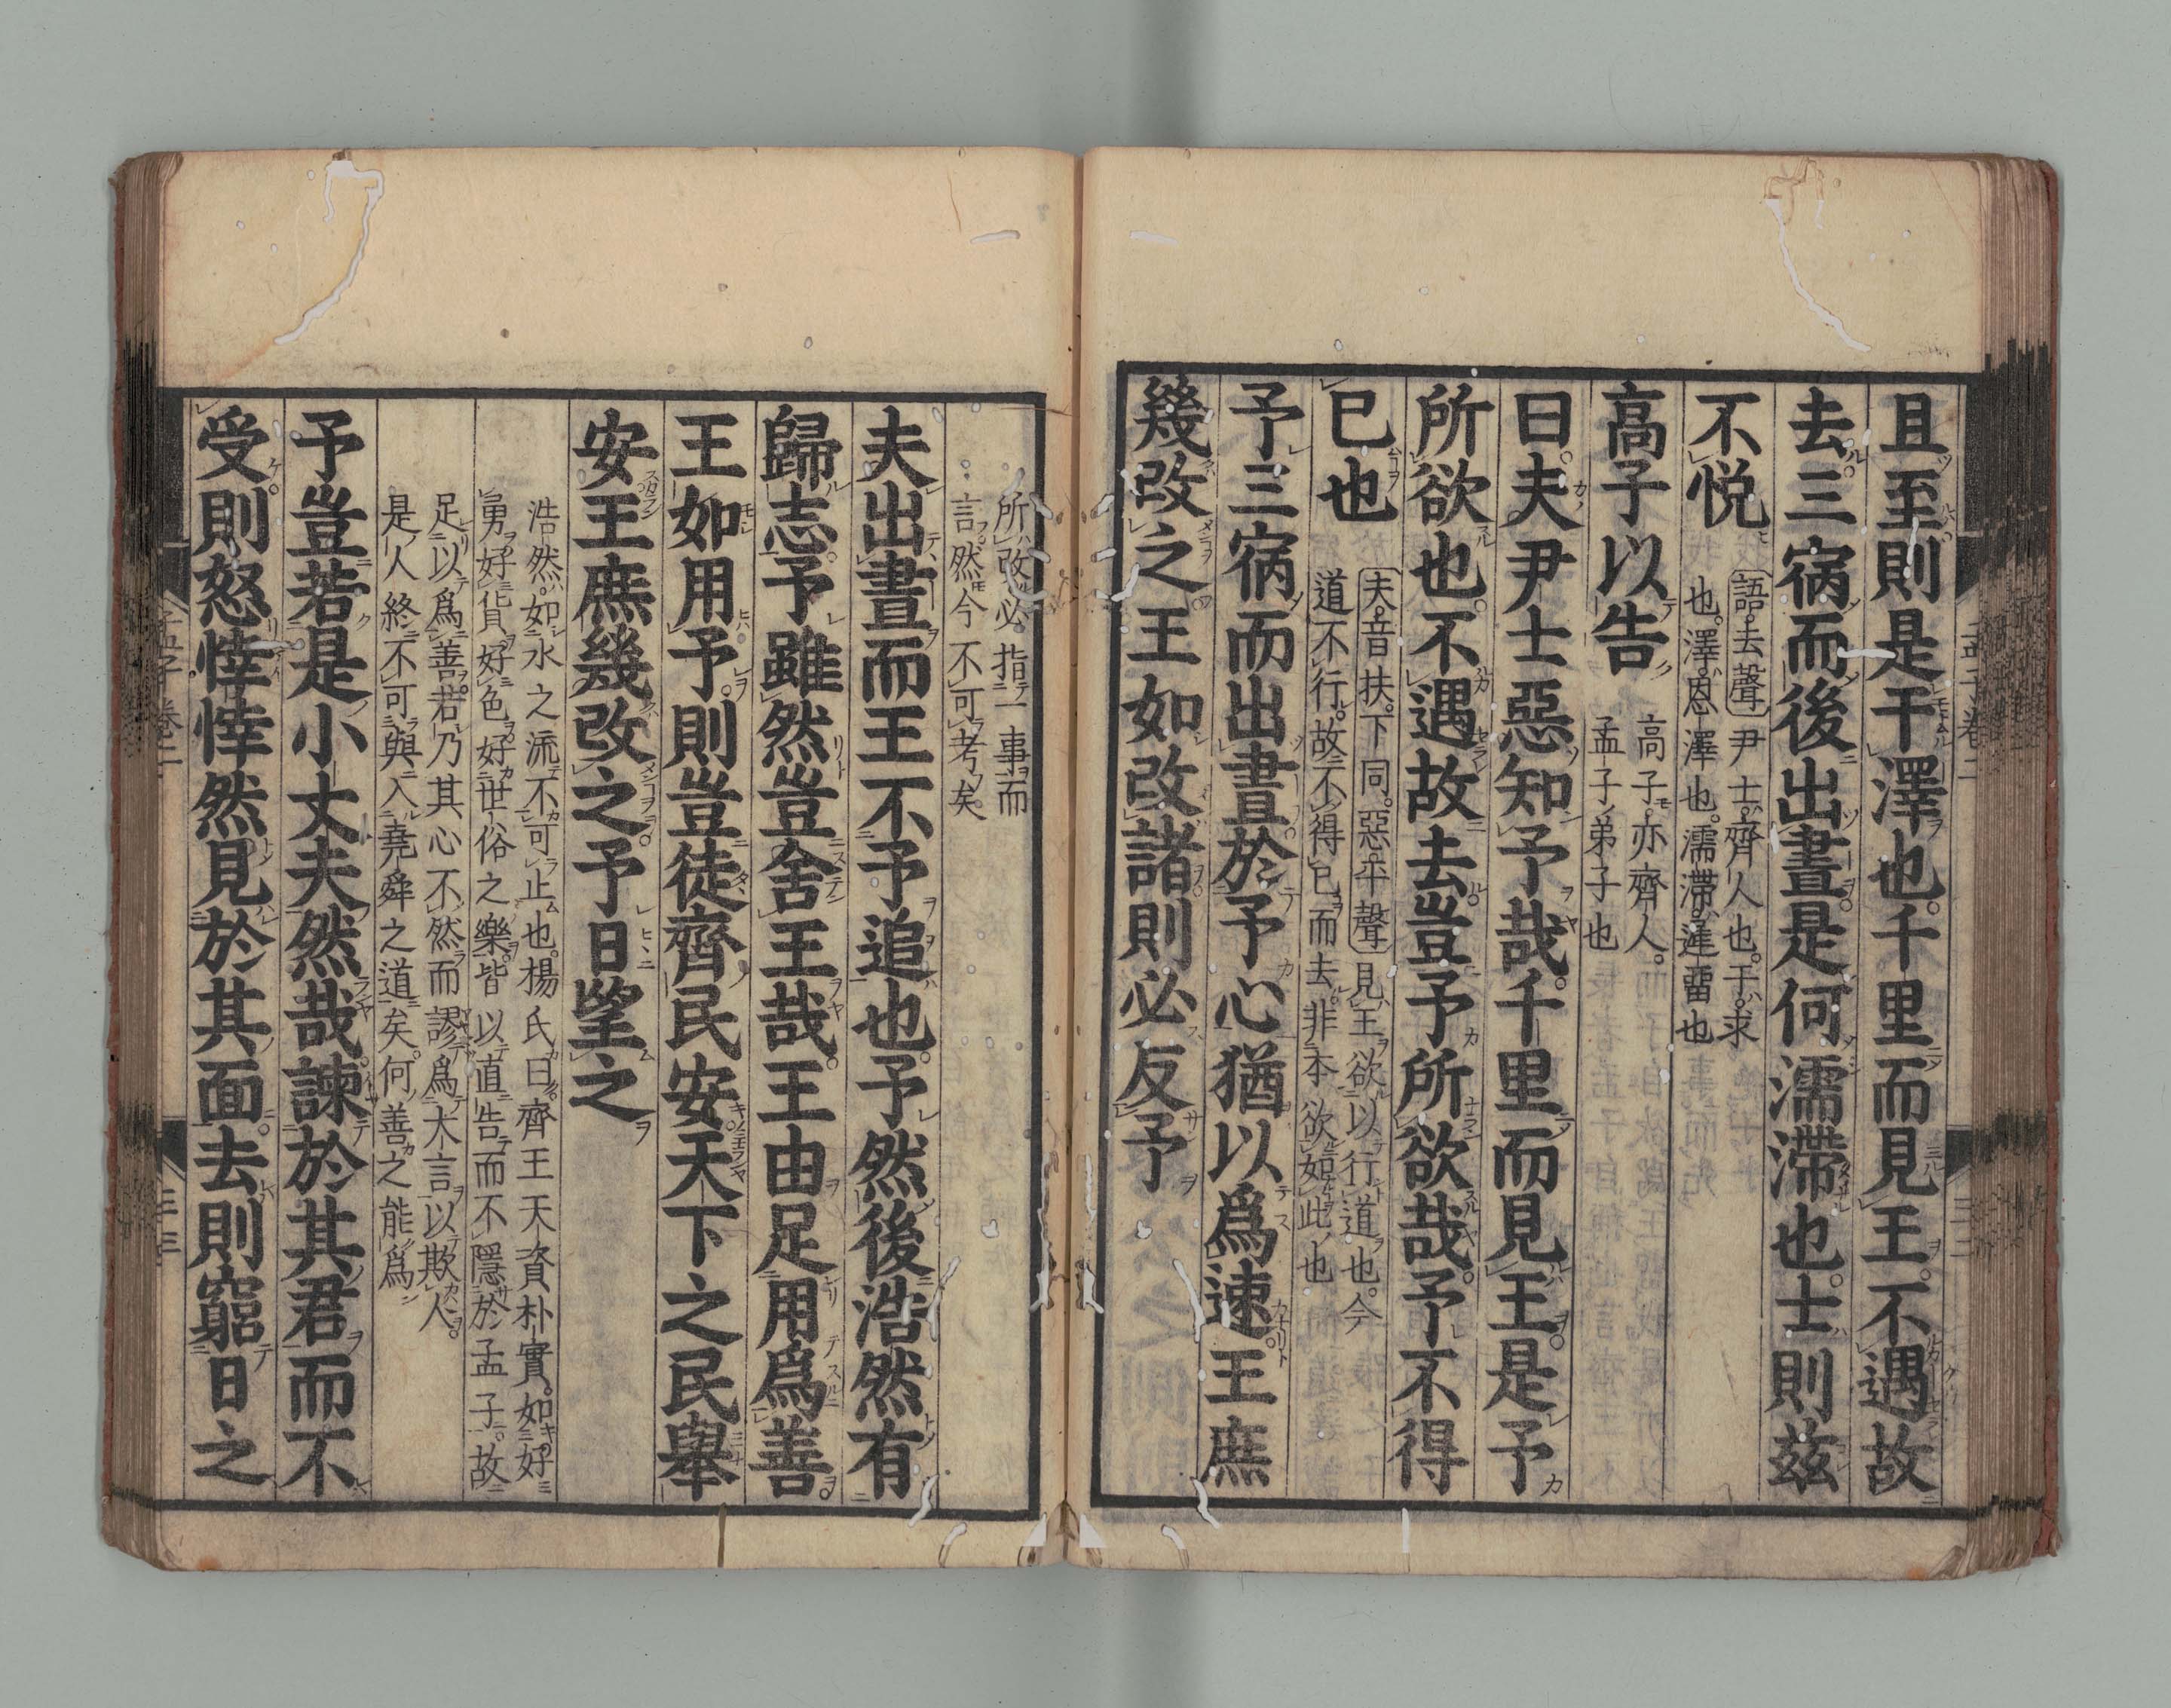 且至則是干澤也千里而見王不遇故
去三宿而後出晝是何濡滯也士則茲
不悦
語去聲尹士齊人也干求
也澤恩澤也濡滯遲留也
高子以告
高子亦齊人
孟子弟子也
曰夫尹士惡知予哉千里而見王是予
所欲也不遇故去豈予所欲哉予不得
已也
夫音扶下同惡平聲見王欲以行道也今
道不行故不得已而去非本欲如此也
予三宿而出晝於予心猶以爲速王庶
幾改之王如改諸則必反予
所改必指一事而
言然今不可考矣
夫出晝而王不予追也予然後浩然有
歸志予雖然豈舍王哉王由足用爲善
王如用予則豈徒齊民安天下之民舉
安王庶幾改之予日望之
浩然如水之流不可止也楊氏曰齊王天資朴實如好
勇好貨好色好世俗之樂皆以直告而不隱於孟子故
足以爲善若乃其心不然而謬爲大言以欺人
是人終不可與入堯舜之道矣何善之能爲
予豈若是小丈夫然哉諫於其君而不
受則怒悻悻然見於其面去則窮日之